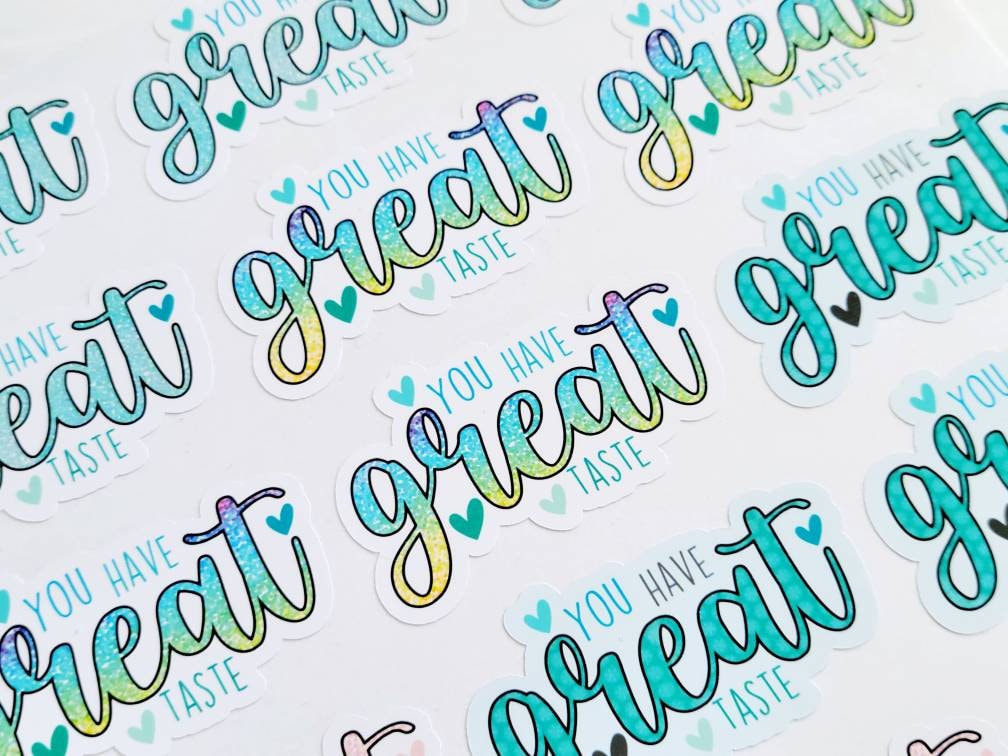 YOU
great
TASTE
YOU
great
TASTE
YOU HAVE
great
TASTE
YOU HAVE
great
TASTE
HAVE
eat
TASTE
YOU HAVE
great
TASTE
YOU
gr
YOU HAVE
great
TASTE
YOU HAVE
great
TASTE